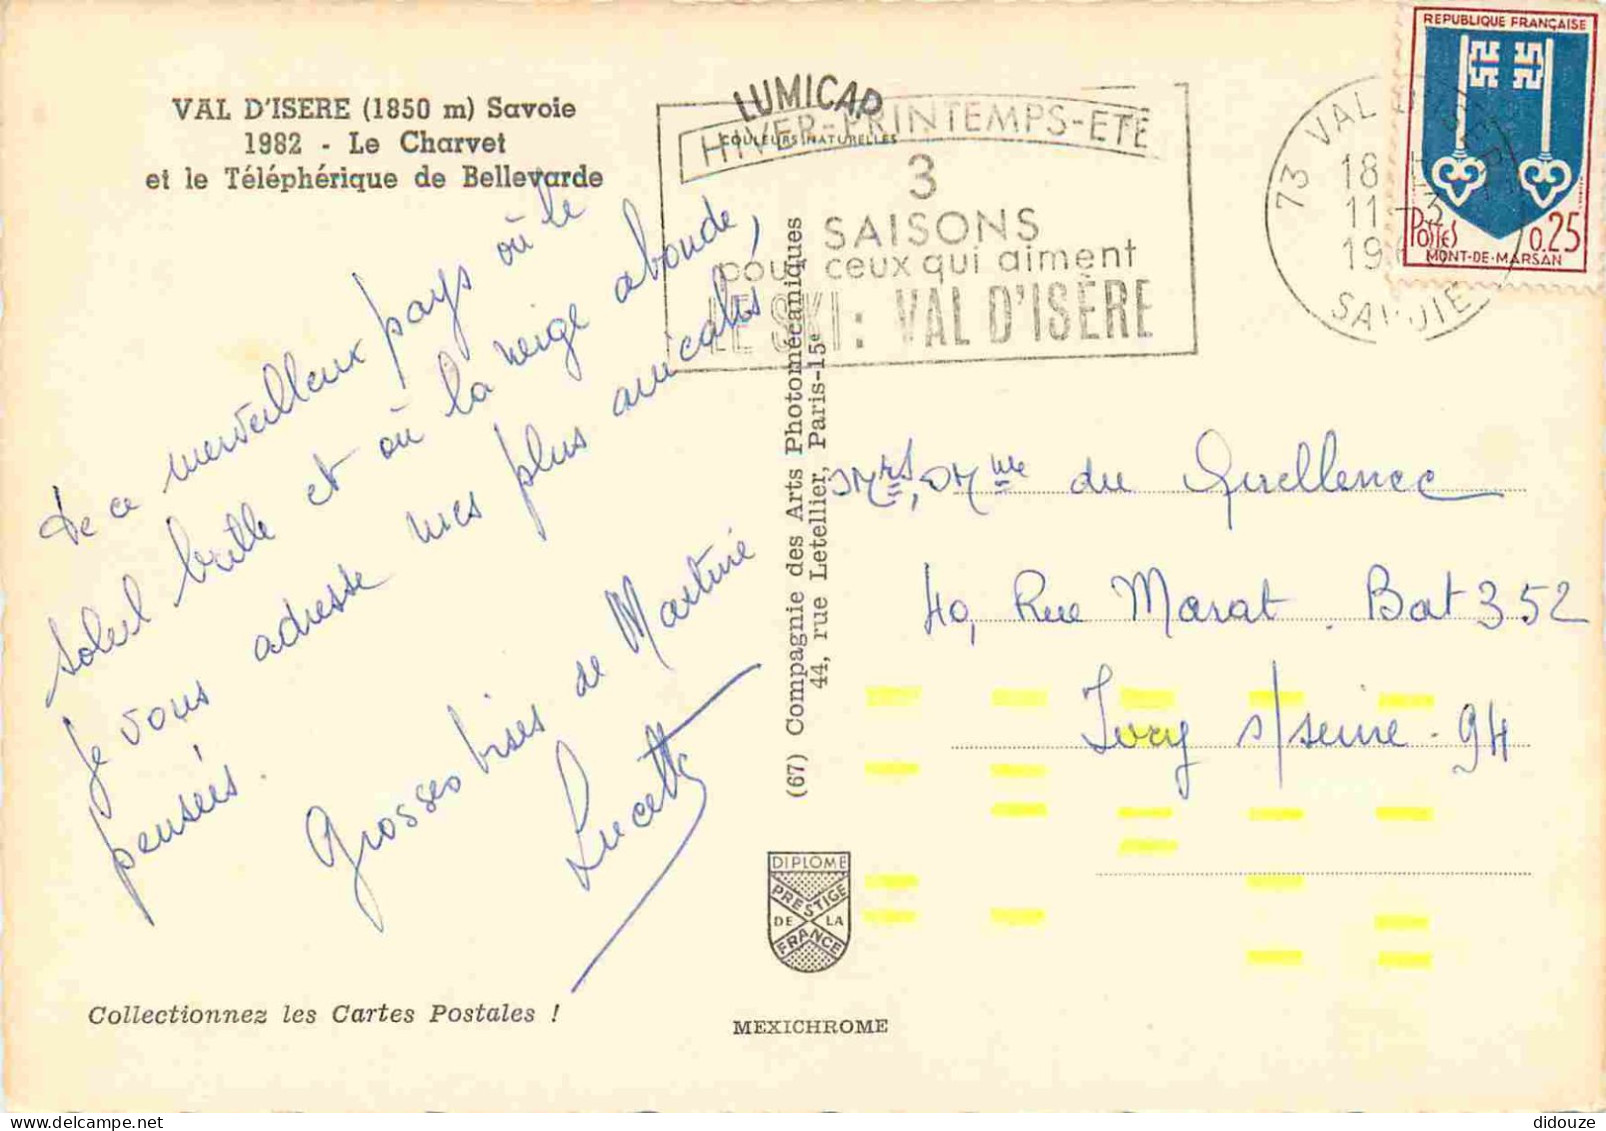 VAL D'ISERE (1850 m) Savoie
1982 - Le Charvet
et le Téléphérique de Bellevarde
LUMICAP
COULEURS NATURELLES
HIVER-PRINTEMPS-ETE
3
SAISONS
pour ceux qui aiment
LE SKI: VAL D'ISÈRE
73 VAL D'ISERE
18
11-3
19
SAVOIE
REPUBLIQUE FRANÇAISE
POSTES
0.25
MONT-DE-MARSAN
De ce merveilleux pays où le
soleil brille et où la neige abonde,
je vous adresse mes plus amicales
pensées.
Grosses bises de Martine
Lucette
(67) Compagnie des Arts Photomécaniques
44, rue Letellier, Paris-15e
Mrs, Mme du Quellenec
40, Rue Marat. Bat 352
Ivry s/seine - 94
DIPLOME
PRESTIGE
DE LA
FRANCE
Collectionnez les Cartes Postales !
MEXICHROME
didouze